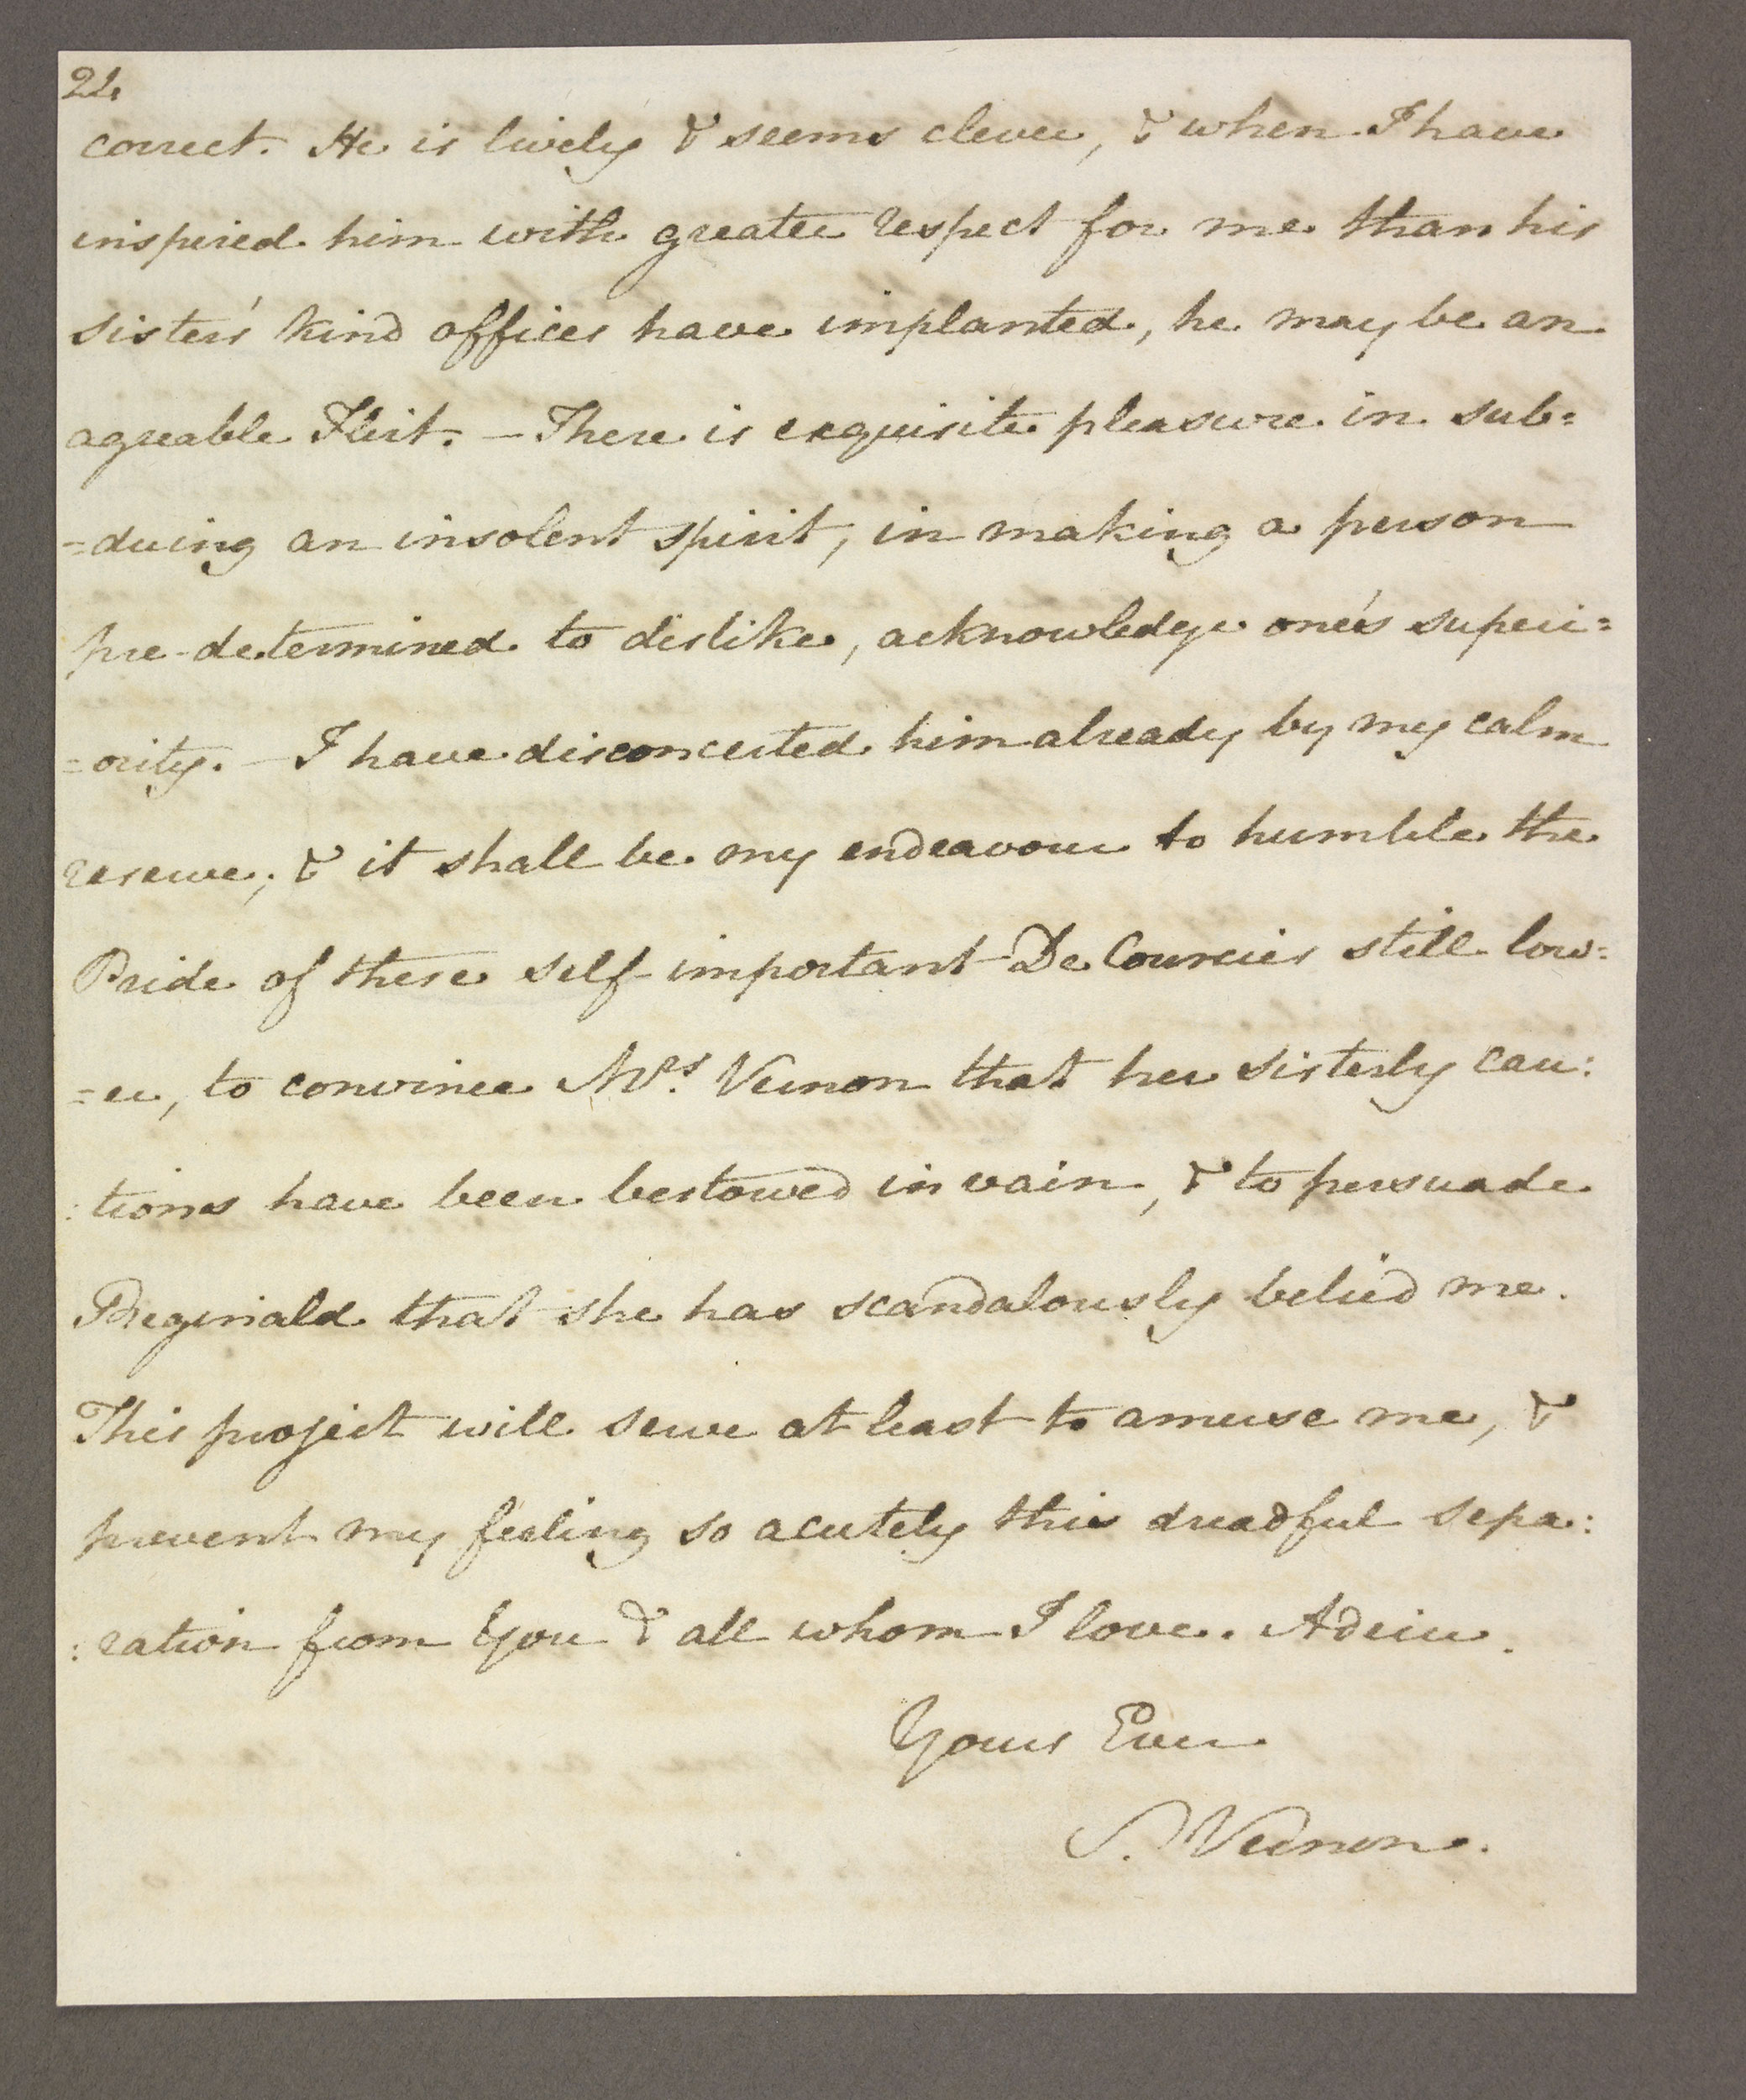 22.
correct. He is lively & seems clever, & when I have
inspired him with greater respect for me than his
sister's kind offices have implanted, he may be an
agreable Flirt. — There is exquisite pleasure in sub=
=duing an insolent spirit, in making a person
pre-determined to dislike, acknowledge one's superi=
=ority. — I have disconcerted him already by my calm
reserve; & it shall be my endeavour to humble the
Pride of these self-important De Courcies still low=
=er, to convince Mrs. Vernon that her sisterly cau:
:tions have been bestowed in vain, & to persuade
Reginald that she has scandalously belied me.
This project will serve at least to amuse me, &
prevent my feeling so acutely this dreadful sepa:
:ration from You & all whom I love. Adeiu.
Yours Ever
S. Vernon.